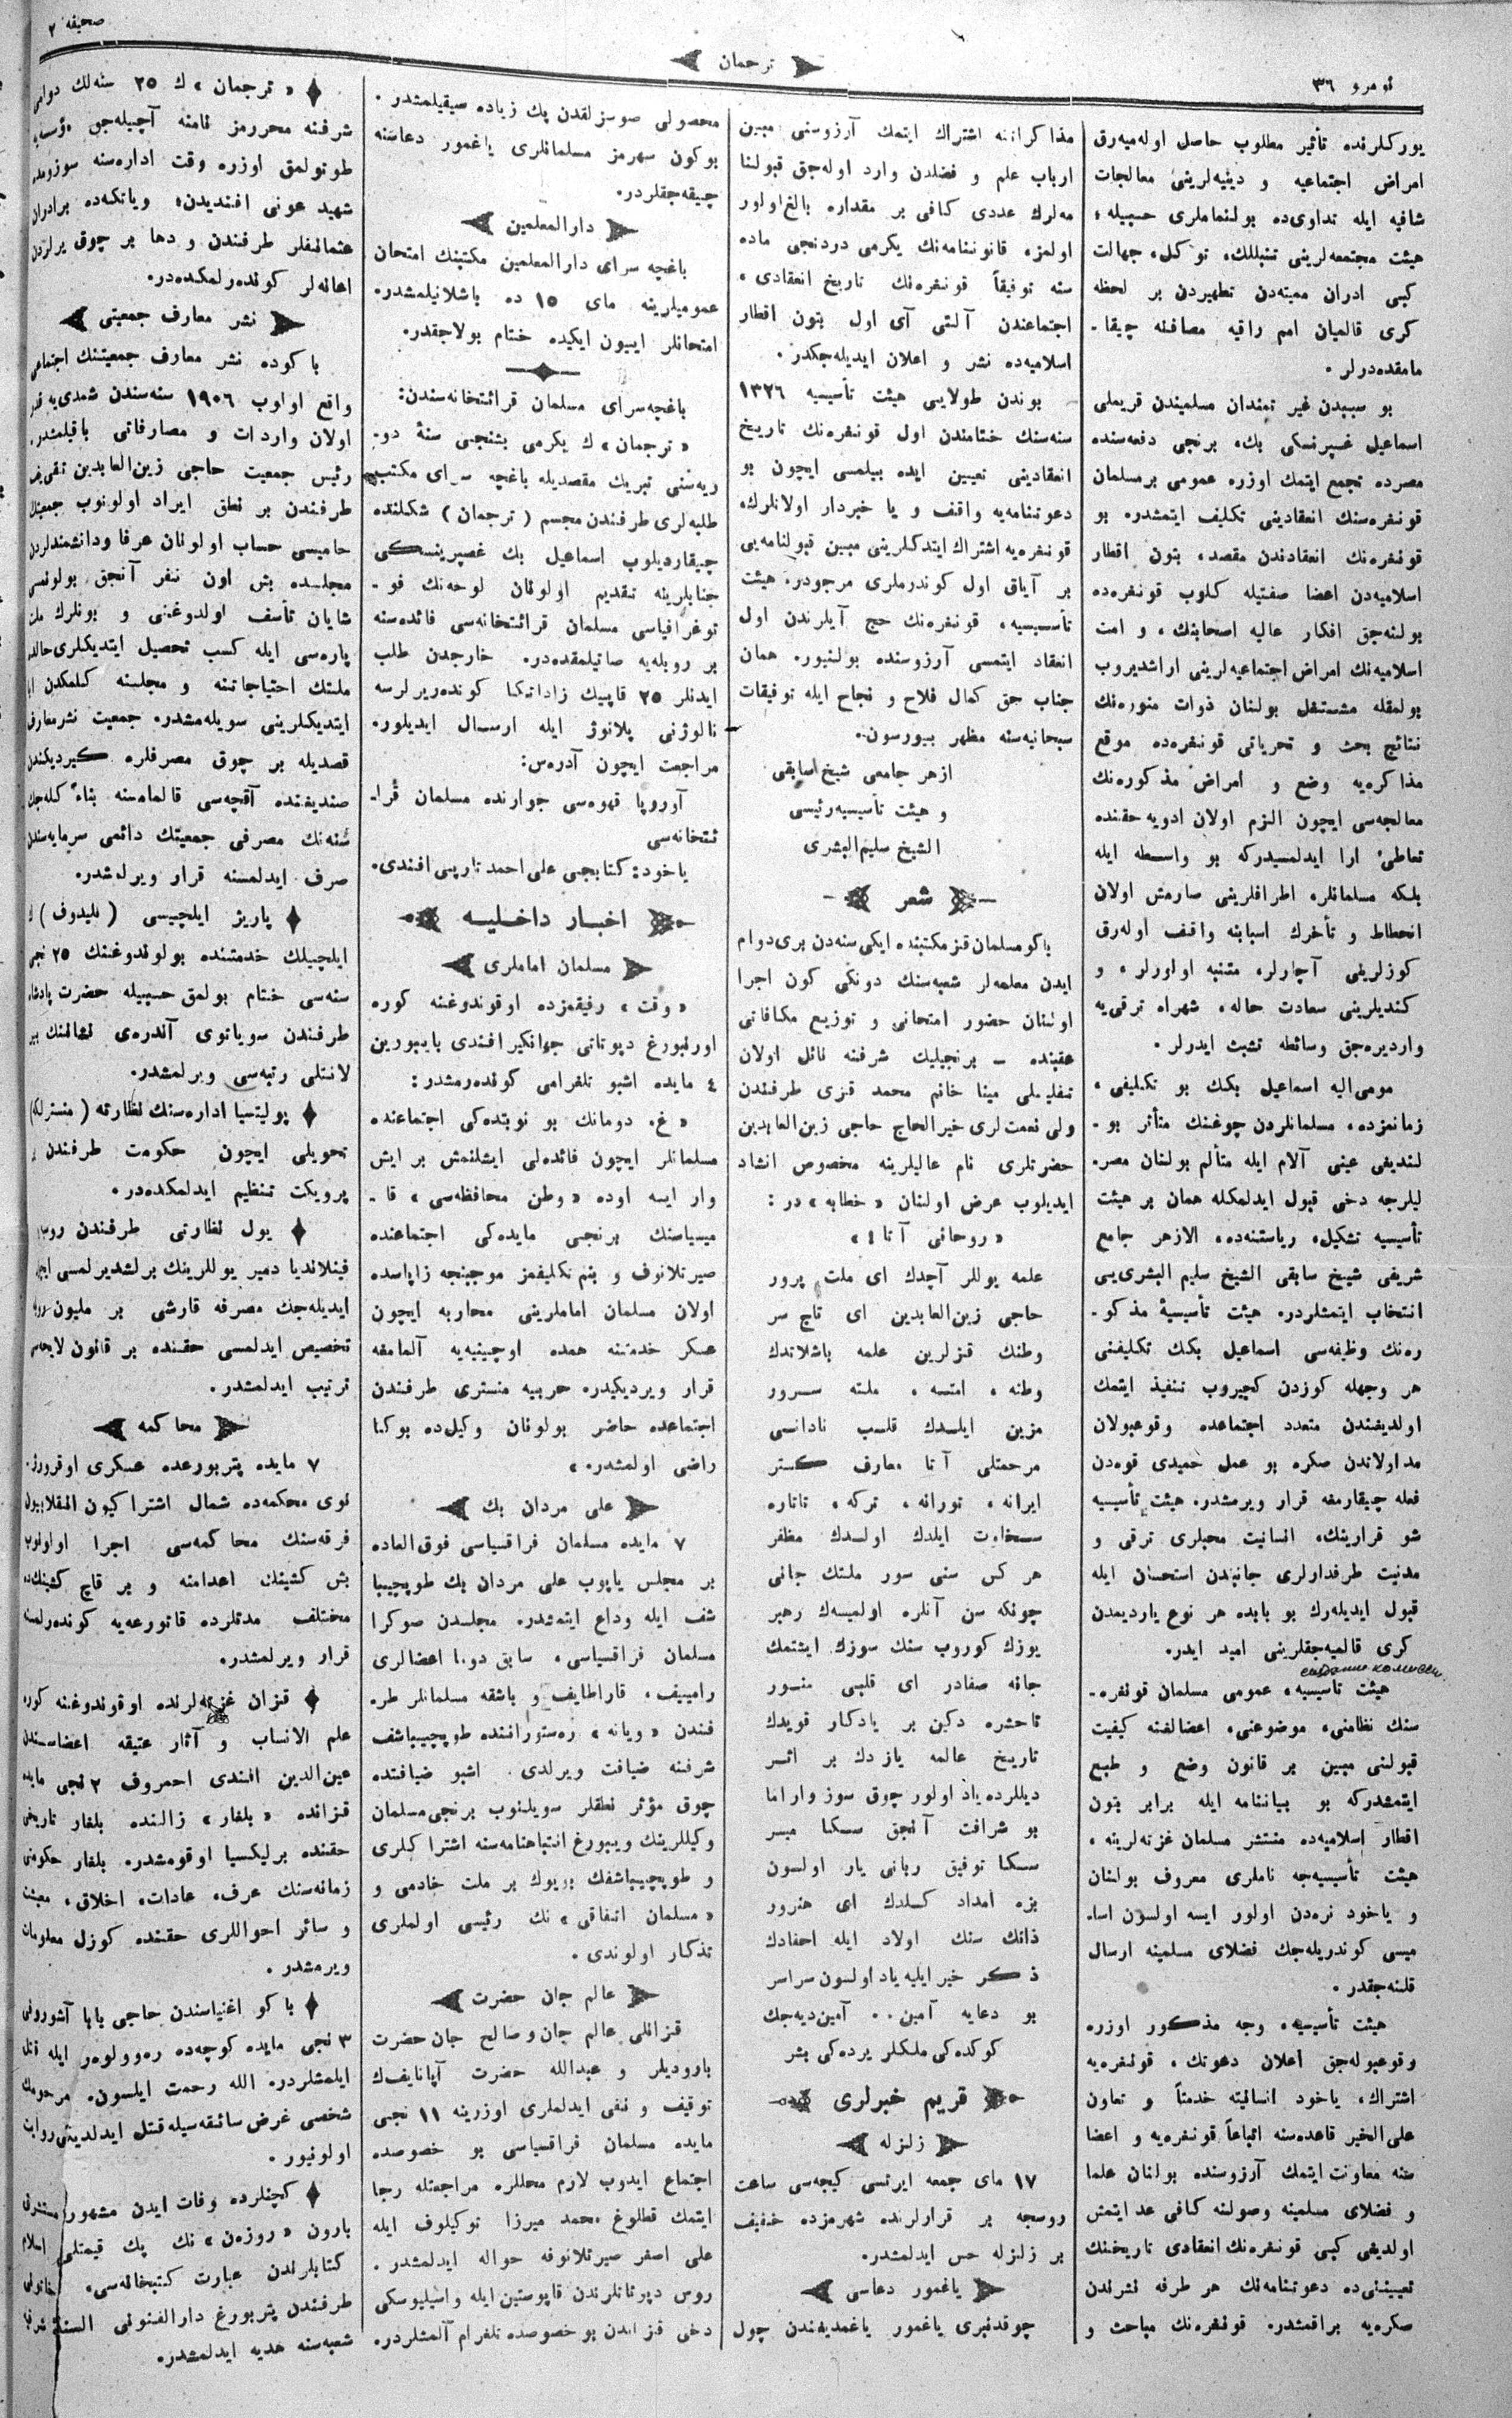 نومرو ٣٦
ترجمان
صحيفه ٢
يوركلرنده تأثير مطلوب حاصل اوله‌ميه‌رق
امراض اجتماعيه و دينيه‌لرينى معالجات
شافيه ايله تداوى‌ده بولنماملرى حسبيله؛
هيئت مجتمعه‌لرينى تنبللك، توكل، جهالت
كبى ادران مميته‌دن تطهيردن بر لحظه
كرى قالميان امم راقيه مصافنه چيقا۔
مامقده‌درلر .
بو سببدن غير تمندان مسلميندن قريملى
اسماعيل غسپرنسكى بك، برنجى دفعه‌سنده
مصرده تجمع ايتمك اوزره عمومى برمسلمان
قونفره‌سنك انعقادينى تكليف ايتمشدر. بو
قونفره‌نك انعقادندن مقصد، بتون اقطار
اسلاميه‌دن اعضا صفتيله كلوب قونفره‌ده
بولنه‌جق افكار عاليه اصحابنك، و امت
اسلاميه‌نك امراض اجتماعيه‌لرينى اراشديروب
بولمقله مشتغل بولنان ذوات منوره‌نك
نتائج بحث و تحرياتى قونفره‌ده موقع
مذاكره‌يه وضع و امراض مذكوره‌نك
معالجه‌سى ايچون الزم اولان ادويه حقنده
تعاطئ ارا ايدلمسيدركه بو واسطه ايله
بلكه مسلمانلر، اطرافلرينى صارمش اولان
انحطاط و تأخرك اسبابنه واقف اوله‌رق
كوزلرينى آچارلر، متنبه اولورلر، و
كنديلرينى سعادت حاله، شهراه ترقى‌يه
وارديره‌جق وسائطه تشبث ايدرلر .
مومى‌اليه اسماعيل بكك بو تكليفى،
زمانمزده، مسلمانلردن چوغنك متأثر بو۔
لنديغى عينى آلام ايله متألم بولنان مصر۔
ليلرجه دخى قبول ايدلمكله همان بر هيئت
تأسيسيه تشكيل، رياستنه‌ده، الازهر جامع
شريفى شيخ سابقى الشيخ سليم البشرى‌يى
انتخاب ايتمشلردر. هيئت تأسيسيۀ مذكو۔
ره‌نك وظيفه‌سى اسماعيل بكك تكليفنى
هر وجهله كوزدن كچيروب تنفيذ ايتمك
اولديغندن متعدد اجتماعده وقوعبولان
مداولاتدن صكره بو عمل حميدى قوه‌دن
فعله چيقارمغه قرار ويرمشدر. هيئت تأسيسيه
شو قرارينك، انسانيت محبلرى ترقى و
مدنيت طرفدارلرى جانبندن استحسان ايله
قبول ايديله‌رك بو بابده هر نوع يارديمدن
كرى قالميه‌جقلرينى اميد ايدر.
هيئت تأسيسيه، عمومى مسلمان قونفره۔
سنك نظامنى، موضوعنى، اعضالغنه كيفيت
قبولنى مبين بر قانون وضع و طبع
ايتمشدركه بو بياننامه ايله برابر بتون
اقطار اسلاميه‌ده منتشر مسلمان غزته‌لرينه،
هيئت تأسيسيه‌جه ناملرى معروف بولنان
و ياخود نره‌دن اولور ايسه اولسون اسا۔
ميسى كوندريله‌جك فضلاى مسلمينه ارسال
قلنه‌جقدر .
هيئت تأسيسيه، وجه مذكور اوزره
وقوعبوله‌جق اعلان دعوتك، قونفره‌يه
اشتراك، ياخود انسانيته خدمتاً و تعاون
على‌الخير قاعده‌سنه اتباعاً قونفره‌يه و اعضا
سنه معاونت ايتمك آرزوسنده بولنان علما
و فضلاى مسلمينه وصولنه كافى عد ايتمش
اولديغى كبى قونفره‌نك انعقادى تاريخنك
تعيينى‌ده دعوتنامه‌نك هر طرفه نشرندن
صكره‌يه براقمشدر. قونفره‌نك مباحث و
مذاكراتنه اشتراك ايتمك آرزوسنى مبين
ارباب علم و فضلدن وارد اوله‌جق قبولنا
مه‌لرك عددى كافى بر مقداره بالغ اولور
اولمز، قانوننامه‌نك يكرمى دردنجى ماده
سنه توفيقاً قونفره‌نك تاريخ انعقادى،
اجتماعندن آلتى آى اول بتون اقطار
اسلاميه‌ده نشر و اعلان ايديله‌جكدر .
بوندن طولايى هيئت تأسيسيه ١٣٢٦
سنه‌سنك ختامندن اول قونفره‌نك تاريخ
انعقادينى تعيين ايده بيلمسى ايچون بو
دعوتنامه‌يه واقف و يا خبردار اولانلرك،
قونفره‌يه اشتراك ايتدكلرينى مبين قبولنامه‌يى
بر آياق اول كوندرملرى مرجودر. هيئت
تأسيسيه، قونفره‌نك حج آيلرندن اول
انعقاد ايتمسى آرزوسنده بولنيور. همان
جناب حق كمال فلاح و نجاح ايله توفيقات
سبحانيه‌سنه مظهر بيورسون.
ازهر جامعى شيخ اسابقى
و هيئت تأسيسيه رئيسى
الشيخ سليم البشرى
شعر
باكو مسلمان قز مكتبنده ايكى سنه‌دن برى دوام
ايدن معلمه‌لر شعبه‌سنك دونكى كون اجرا
اولنان حضور امتحانى و توزيع مكافاتى
عقبنده ــ برنجيليك شرفنه نائل اولان
تفليسلى مينا خانم محمد قزى طرفندن
ولى نعمت‌لرى خيرالحاج حاجى زين‌العابدين
حضرتلرى نام عاليلرينه مخصوص انشاد
ايديلوب عرض اولنان « خطابه » در :
« روحانى آتا ! »
علمه يوللر آچدك اى ملت پرور
حاجى زين‌العابدين اى تاج سر
وطنك قزلرين علمه باشلاتدك
وطنه، امتسه، ملته سرور
مزين ايلدك قلب نادانى
مرحمتلى آتا معارف كستر
ايرانه، تورانه، تركه، تاتاره
سخاوت ايلدك اولدك مظفر
هر كس سنى سور ملتك جانى
چونكه سن آنلره اولميسك رهبر
يوزك كوروب سنك سوزك ايشتمك
جانه صفادر اى قلبى منور
تاحشره دكين بر يادكار قويدك
تاريخ عالمه يازدك بر اثر
ديللرده ياد اولور چوق سوز واراما
بو شرافت آنجق سكا ميسر
سكا توفيق ربانى يار اولسون
بزه امداد كلدك اى هنرور
ذاتك سنك اولاد ايله احفادك
ذكر خير ايليه ياد اولسون سراسر
بو دعايه آمين .. آمين‌ديه‌جك
كوكده‌كى ملكلر يرده‌كى بشر
قريم خبرلرى
زلزله
١٧ ماى جمعه ايرتسى كيجه‌سى ساعت
روسجه بر قرارلرنده شهرمزده خفيف
بر زلزله حس ايدلمشدر.
ياغمور دعاسى
چوقدنبرى ياغمور ياغمديغندن چول
محصولى صوسزلقدن پك زياده صيقيلمشدر .
بوكون شهرمز مسلمانلرى ياغمور دعاسنه
چيقه‌جقلردر.
دارالمعلمين
باغچه سراى دارالمعلمين مكتبنك امتحان
عموميلرينه ماى ١٥ ده باشلانيلمشدر.
امتحانلر ايييون ايكيده ختام بولاجقدر.
باغچه‌سراى مسلمان قرائتخانه‌سندن:
« ترجمان » ك يكرمى بشنجى سنۀ دو۔
ريه‌سنى تبريك مقصديله باغچه سراى مكتب
طلبه‌لرى طرفندن مجسم ( ترجمان ) شكلنده
چيقارديلوب اسماعيل بك غصپرينسكى
جنابلرينه تقديم اولونان لوحه‌نك فو۔
توغرافياسى مسلمان قرائتخانه‌سى فائده‌سنه
بر روبله‌يه صاتيلمقده‌در. خارجدن طلب
ايدنلر ٢٥ قاپيك زاداتكا كونده‌ريرلرسه
نالوژنى پلاتوژ ايله ارسال ايديلور.
مراجعت ايچون آدره‌س:
آوروپا قهوه‌سى جوارنده مسلمان قرا۔
ئتخانه‌سى
ياخود: كتابجى على احمد تارپى افندى.
اخبار داخليه
مسلمان اماملرى
« وقت » رفيقمزده اوقوندوغنه كوره
اورنبورغ دپوتاتى جهانكير افندى بايبورين
٤ مايده اشبو تلغرامى كونده‌رمشدر:
« غ. دومانك بو نوبتده‌كى اجتماعنده
مسلمانلر ايچون فائده‌لى ايشلنمش بر ايش
وار ايسه اوده « وطن محافظه‌سى » قا۔
ميسياسنك برنجى مايده‌كى اجتماعنده
صيرتلانوف و بنم تكليفمز موجبنجه زاپاسده
اولان مسلمان اماملرينى محاربه ايچون
عسكر خدمتنه همده اوچينيه‌يه آلمامغه
قرار ويرديكيدر. حربيه منسترى طرفندن
اجتماعده حاضر بولونان وكيل‌ده بوكا
راضى اولمشدر. »
على مردان بك
٧ مايده مسلمان فراقسياسى فوق‌العاده
بر مجلس ياپوب على مردان بك طوپچيبا
شف ايله وداع ايتمشدر. مجلسدن صوكرا
مسلمان فراقسياسى، سابق دوما اعضالرى
رامييف، قاراطايف و باشقه مسلمانلر طر۔
فندن « ويانه » ره‌ستورانده طوپچيباشف
شرفنه ضيافت ويرلدى. اشبو ضيافتده
چوق مؤثر نطقلر سويلنوب برنجى مسلمان
وكيللرينك ويبورغ انتباهنامه‌سنه اشتراكلرى
و طوپچيباشفك بيوك بر ملت خادمى و
« مسلمان اتفاقى » نك رئيسى اولملرى
تذكار اولوندى .
عالم جان حضرت
قزانلى عالم جان و صالح جان حضرت
باروديلر و عبدالله حضرت آپانايف‌ك
توقيف و نفى ايدلملرى اوزرينه ١١ نجى
مايده مسلمان فراقسياسى بو خصوصده
اجتماع ايدوب لازم محللره مراجعتله رجا
ايتمك قطلوغ محمد ميرزا توكيلوف ايله
على اصغر صيرتلانوفه حواله ايدلمشدر .
روس دپوتاتلرندن قاپوستين ايله واسيليوسكى
دخى قزاندن بو خصوصده تلغرام آلمشلردر.
« ترجمان » ك ٢٥ سنه‌لك دوامى
شرفنه محررمز نامنه آچيله‌جق مؤسسه‌يه
طوتولمق اوزره وقت اداره‌سنه سوزومده
شهيد عونى افنديدن؛ وياتكه‌ده برادران
عثمانفلر طرفندن و دها بر چوق يرلردن
اعانه‌لر كونده‌رلمكده‌در.
نشر معارف جمعيتى
باكوده نشر معارف جمعيتنك اجتماعى
واقع اولوب ١٩٠٦ سنه‌سندن شمدى‌يه قدر
اولان واردات و مصارفاتى باقيلمشدر.
رئيس جمعيت حاجى زين‌العابدين تقى‌يف
طرفندن بر نطق ايراد اولونوب جمعيتك
حاميسى حساب اولونان عرفا ودانشمندلردن
مجلسده بش اون نفر آنجق بولونمسى
شايان تأسف اولدوغنى و بونلرك ملت
پاره‌سى ايله كسب تحصيل ايتديكلرى حالده
ملتك احتياجاتنه و مجلسنه كلمكدن ابا
ايتديكلرينى سويله‌مشدر. جمعيت نشرمعارف
قصديله بر چوق مصرفلره كيرديكندن
صنديغنده آقچه‌سى قالمامه‌سنه بناءً كله‌جك
سنه‌نك مصرفى جمعيتك دائمى سرمايه‌سندن
صرف ايدلمسنه قرار ويرلمشدر.
پاريژ ايلچيسى ( نليدوف ) ك
ايلچيلك خدمتنده بولوندوغنك ٢٥ نجى
سنه‌سى ختام بولمق حسبيله حضرت پادشاه
طرفندن سوياتوى آندره‌ى نشاننك بير
لانتلى رتبه‌سى ويرلمشدر.
پوليتسيا اداره‌سنك نظارته ( منسترلكه )
تحويلى ايچون حكومت طرفندن
پرويكت تنظيم ايدلمكده‌در.
يول نظارتى طرفندن روسيا
فينلانديا دمير يوللرينك برلشديرلمسى ايچون
ايديله‌جك مصرفه قارشى بر مليون روبله
تخصيص ايدلمسى حقنده بر قانون لايحه‌سى
ترتيب ايدلمشدر.
محاكمه
٧ مايده پتربورغده عسكرى اوقروژ۔
نوى محكمه‌ده شمال اشتراكيون انقلابيون
فرقه‌سنك محاكمه‌سى اجرا اولونوب
بش كشينك اعدامنه و بر قاچ كشينك‌ده
مختلف مدتلرده قاتورغه‌يه كونده‌رلمسنه
قرار ويرلمشدر.
قزان غزته‌لرنده اوقوندوغنه كوره
علم الانساب و آثار عتيقه اعضاسندن
عين‌الدين افندى احمروف ٢ نجى مايده
قزانده « بلغار » زالنده بلغار تاريخى
حقنده برليكسيا اوقومشدر. بلغار حكومتى
زمانه‌سنك عرف، عادات، اخلاق، معيشت
و سائر احواللرى حقنده كوزل معلومات
ويرمشدر .
باكو اغنياسندن حاجى بابا آشورونى
٣ نجى مايده كوچه‌ده ره‌وولوه‌ر ايله قتل
ايلمشلردر. الله رحمت ايلسون. مرحومك
شخصى غرض سائقه‌سيله قتل ايدلديكى روايت
اولونيور .
كچنلرده وفات ايدن مشهور مستشرق
بارون « روزه‌ن » نك پك قيمتلى اسلام
كتابلرندن عبارت كتبخانه‌سى، خاتونى
طرفندن پتربورغ دارالفنونى السنۀ شرقيه
شعبه‌سنه هديه ايدلمشدر.